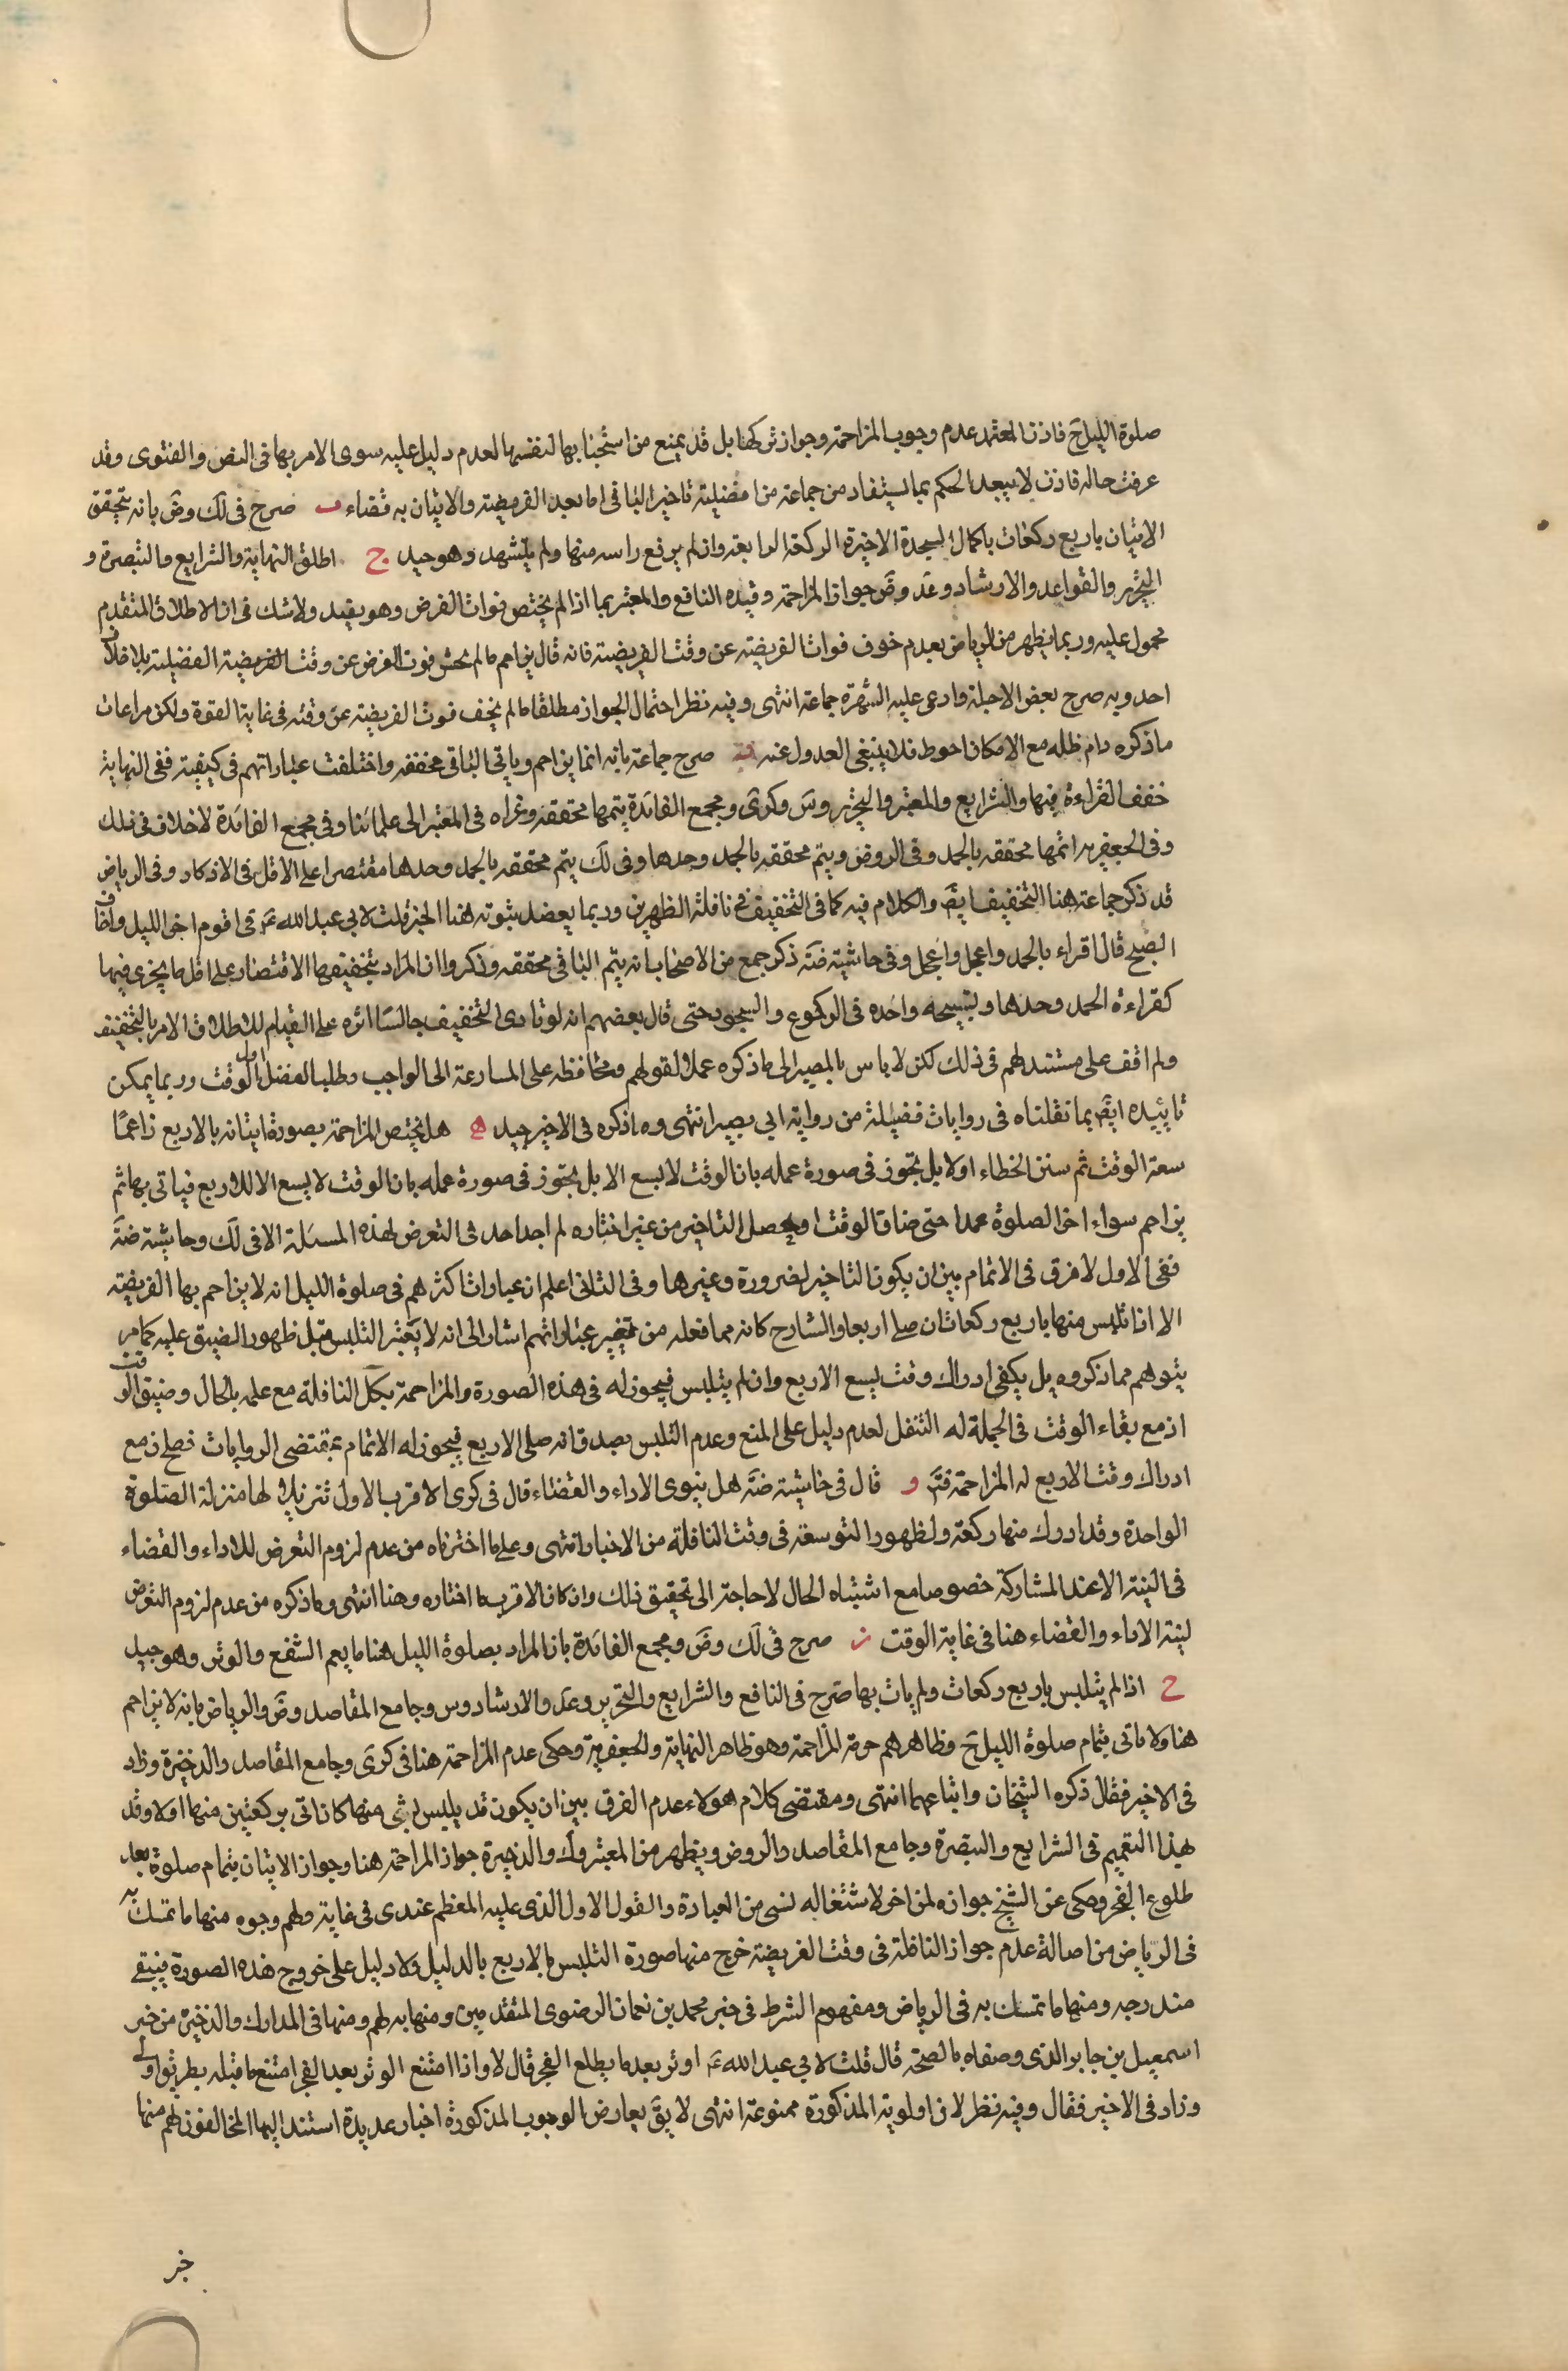 صلوة الليل ح فاذن المعتمد عدم وجوب المزاحمة وجواز تركها بل قد يمنع من استحبابها لنفسها لعدم دليل عليه سوى الامر بها فى النص والفتوى وقد
عرفت حاله فاذن لا يبعد الحكم بما يستفاد من جماعة من افضلية تاخير الباقى اما بعد الفريضة والاتيان به قضاء ب صرح فى لك وض بانه يتحقق
الاتيان باربع ركعات باكمال السجدة الاخيرة الركعة الرابعة وان لم يرفع راسه منها ولم يتشهد وهو جيد ج اطلق النهاية والشرايع والتبصرة و
التحرير والقواعد والارشاد وعد وض جواز المزاحمة وقيده النافع والمعتبر بما اذا لم يختص فوات الفرض وهو يفيد ولا شك فى ان الاطلاق المتقدم
محمول عليه وربما يظهر من الرياض بعدم خوف فوات الفريضة عن وقت الفريضة فانه قال يزاحم ما لم يخش فوت الفرض عن وقت الفريضة الفضيلية بلا خلاف
احد وبه صرح بعض الاجلة وادعى عليه الشهرة جماعة انتهى وفيه نظر احتمال الجواز مطلقا ما لم يخف فوت الفريضة عن وقته فى غاية القوة ولكن مراعات
ما ذكره دام ظله مع الامكان احوط فلا ينبغى العدول عنه د صرح جماعة بانه انما يزاحم وياتى الباقى مخففه واختلفت عباراتهم فى كيفيته ففى النهاية
خفف القراءة فيها والشرايع والمعتبر والتحرير وس وكرى ومجمع الفائدة يتمها مخففة وعزاه فى المعتبر الى علمائنا وفى مجمع الفائدة لا خلاف فى ذلك
وفى الجعفرية اتمها مخففه بالحمد وفى الروض ويتم مخففه بالحمد وحدها وفى لك يتم مخففه بالحمد وحدها مقتصرا على الاقل فى الاذكار وفى الرياض
قد ذكر جماعة هنا التخفيف ايض والكلام فيه كما فى التخفيف فى نافلة الظهرين وربما يعضد بثبوته هنا الخبر قلت لابى عبد الله ع اقوم اخر الليل واخاف
الصبح قال اقراء بالحمد واعجل واعجل وفى حاشية ضه ذكر جمع من الاصحاب انه يتم الباقى مخففه وذكروا ان المراد بتخفيفها الاقتصار على اقل ما يجزى فيها
كقراءة الحمد وحدها وتسبيحه واحده فى الركوع والسجود حتى قال بعضهم انه لو تادى التخفيف جالسا اثره على القيام لاطلاق الامر بالتخفيف
ولم اقف على مستند لهم فى ذلك لكن لا باس بالمصير الى ما ذكره عملا لقولهم ومحافظه على المسارعة الى الواجب وطلبا لفضل اول الوقت وربما يمكن
تاييده ايض بما نقلناه فى روايات فضيلة من رواية ابى بصير انتهى وما ذكره فى الاخير جيد ه هل يختص المزاحمة بصورة اتيانه بالاربع زاعما
سعة الوقت ثم الخطاء اولا بل يجوز فى صورة عمله بان الوقت لا يسع الا بل يجوز فى صورة عمله بان الوقت لا يسع الا الاربع فياتى بها ثم
يزاحم سواء اخر الصلوة عمدا حتى ضاق الوقت او حصل التاخير من غير اختياره لم اجد احد فى التعرض لهذه المسئلة الا فى لك وحاشية ضه
ففى الاول لا فرق فى الاتمام بين ان يكون التاخير لضرورة وغيرها وفى الثانى اعلم ان عبارات اكثرهم فى صلوة الليل انه لا يزاحم بها الفريضة
الا اذا تلبس منها باربع ركعات ان صلى اربعا والشارح كانه مما فعله من تغيير عباراتهم اشار الى انه لا يعتبر التلبس قبل ظهور الضيق عليه كما مر
يتوهم مما ذكروه بل يكفى ادراك وقت يسع الاربع وان لم يتلبس فيجوز له فى هذه الصورة والمزاحمة بكل النافلة مع علمه بالحال وضيق الوقت
اذ مع بقاء الوقت فى الجملة له التنفل لعدم دليل على المنع وعدم التلبس بصدق انه صلى الاربع فيجوز له الاتمام بمقتضى الروايات فصلى مع
ادراك وقت الاربع له المزاحمة و قال فى حاشية ضه هل ينوى الاداء والقضاء قال فى كرى الاقرب الاول تنزيلا لها منزلة الصلوة
الواحدة وقد ادرك منها ركعة ولظهور التوسعة فى وقت النافلة من الاخبار انتهى وعلى ما اخترناه من عدم لزوم التعرض للاداء والقضاء
فى النية الا عند المشاركة خصوصا مع اشتباه الحال لا حاجة الى تحقيق ذلك وان كان الاقرب ما اختاره وهنا انتهى وما ذكره من عدم لزوم التعرض
لنية الاداء والقضاء هنا فى غاية الوقت ز صرح فى لك وض ومجمع الفائدة بان المراد بصلوة الليل هنا ما يعم الشفع والوتر وهو جيد
ح اذا لم يتلبس باربع ركعات ولم يات بها صرح فى النافع والشرايع والتحرير وعد والارشاد وس وجامع المقاصد وض والرياض بانه لا يزاحم
هنا ولا ياتى بتمام صلوة الليل ح وظاهرهم حرمة المزاحمة وهو ظاهر النهاية والجعفرية وحكى عدم المزاحمة هنا فى كرى وجامع المقاصد والذخيرة وزاد
فى الاخير فقال ذكره الشيخان واتباعهما انتهى ومقتضى كلام هولاء عدم الفرق بين ان يكون قد يلبس لشى منها كان اتى بركعتين منها اولا وقد
بهذا التعميم فى الشرايع والتبصرة وجامع المقاصد والروض ويظهر من المعتبر ولك والذخيرة جواز المزاحمة هنا وجواز الاتيان بتمام صلوة بعد
طلوع الفجر وحكى عن الشيخ جوازه لمن اخر لاشتغاله لشى من العبادة والقول الاول الذى عليه المعظم عندى فى غاية ولهم وجوه منها ما تمسك به
فى الرياض من اصالة عدم جواز النافلة فى وقت الفريضة خرج منها صورة التلبس بالاربع بالدليل ولا دليل على خروج هذه الصورة فيبقى
مندرجه ومنها ما تمسك به فى الرياض ومفهوم الشرط فى خبر محمد بن نعمان الرضوى المتقدمين ومنها به لهم ومنها فى المدارك والذخيرة من خبر
اسمعيل بن جابر الذى وصفاه بالصحة قال قلت لابى عبد الله ع اوتر بعد ما يطلع الفجر قال لا واذا امتنع الوتر بعد الفجر امتنع ما قبله بطريق اولى
وزاد فى الاخير فقال وفيه نظر لان اولوية المذكورة ممنوعة انتهى لا يق يعارض الوجوب المذكورة اخبار عديدة استند اليها المخالفون لهم منها
خبر